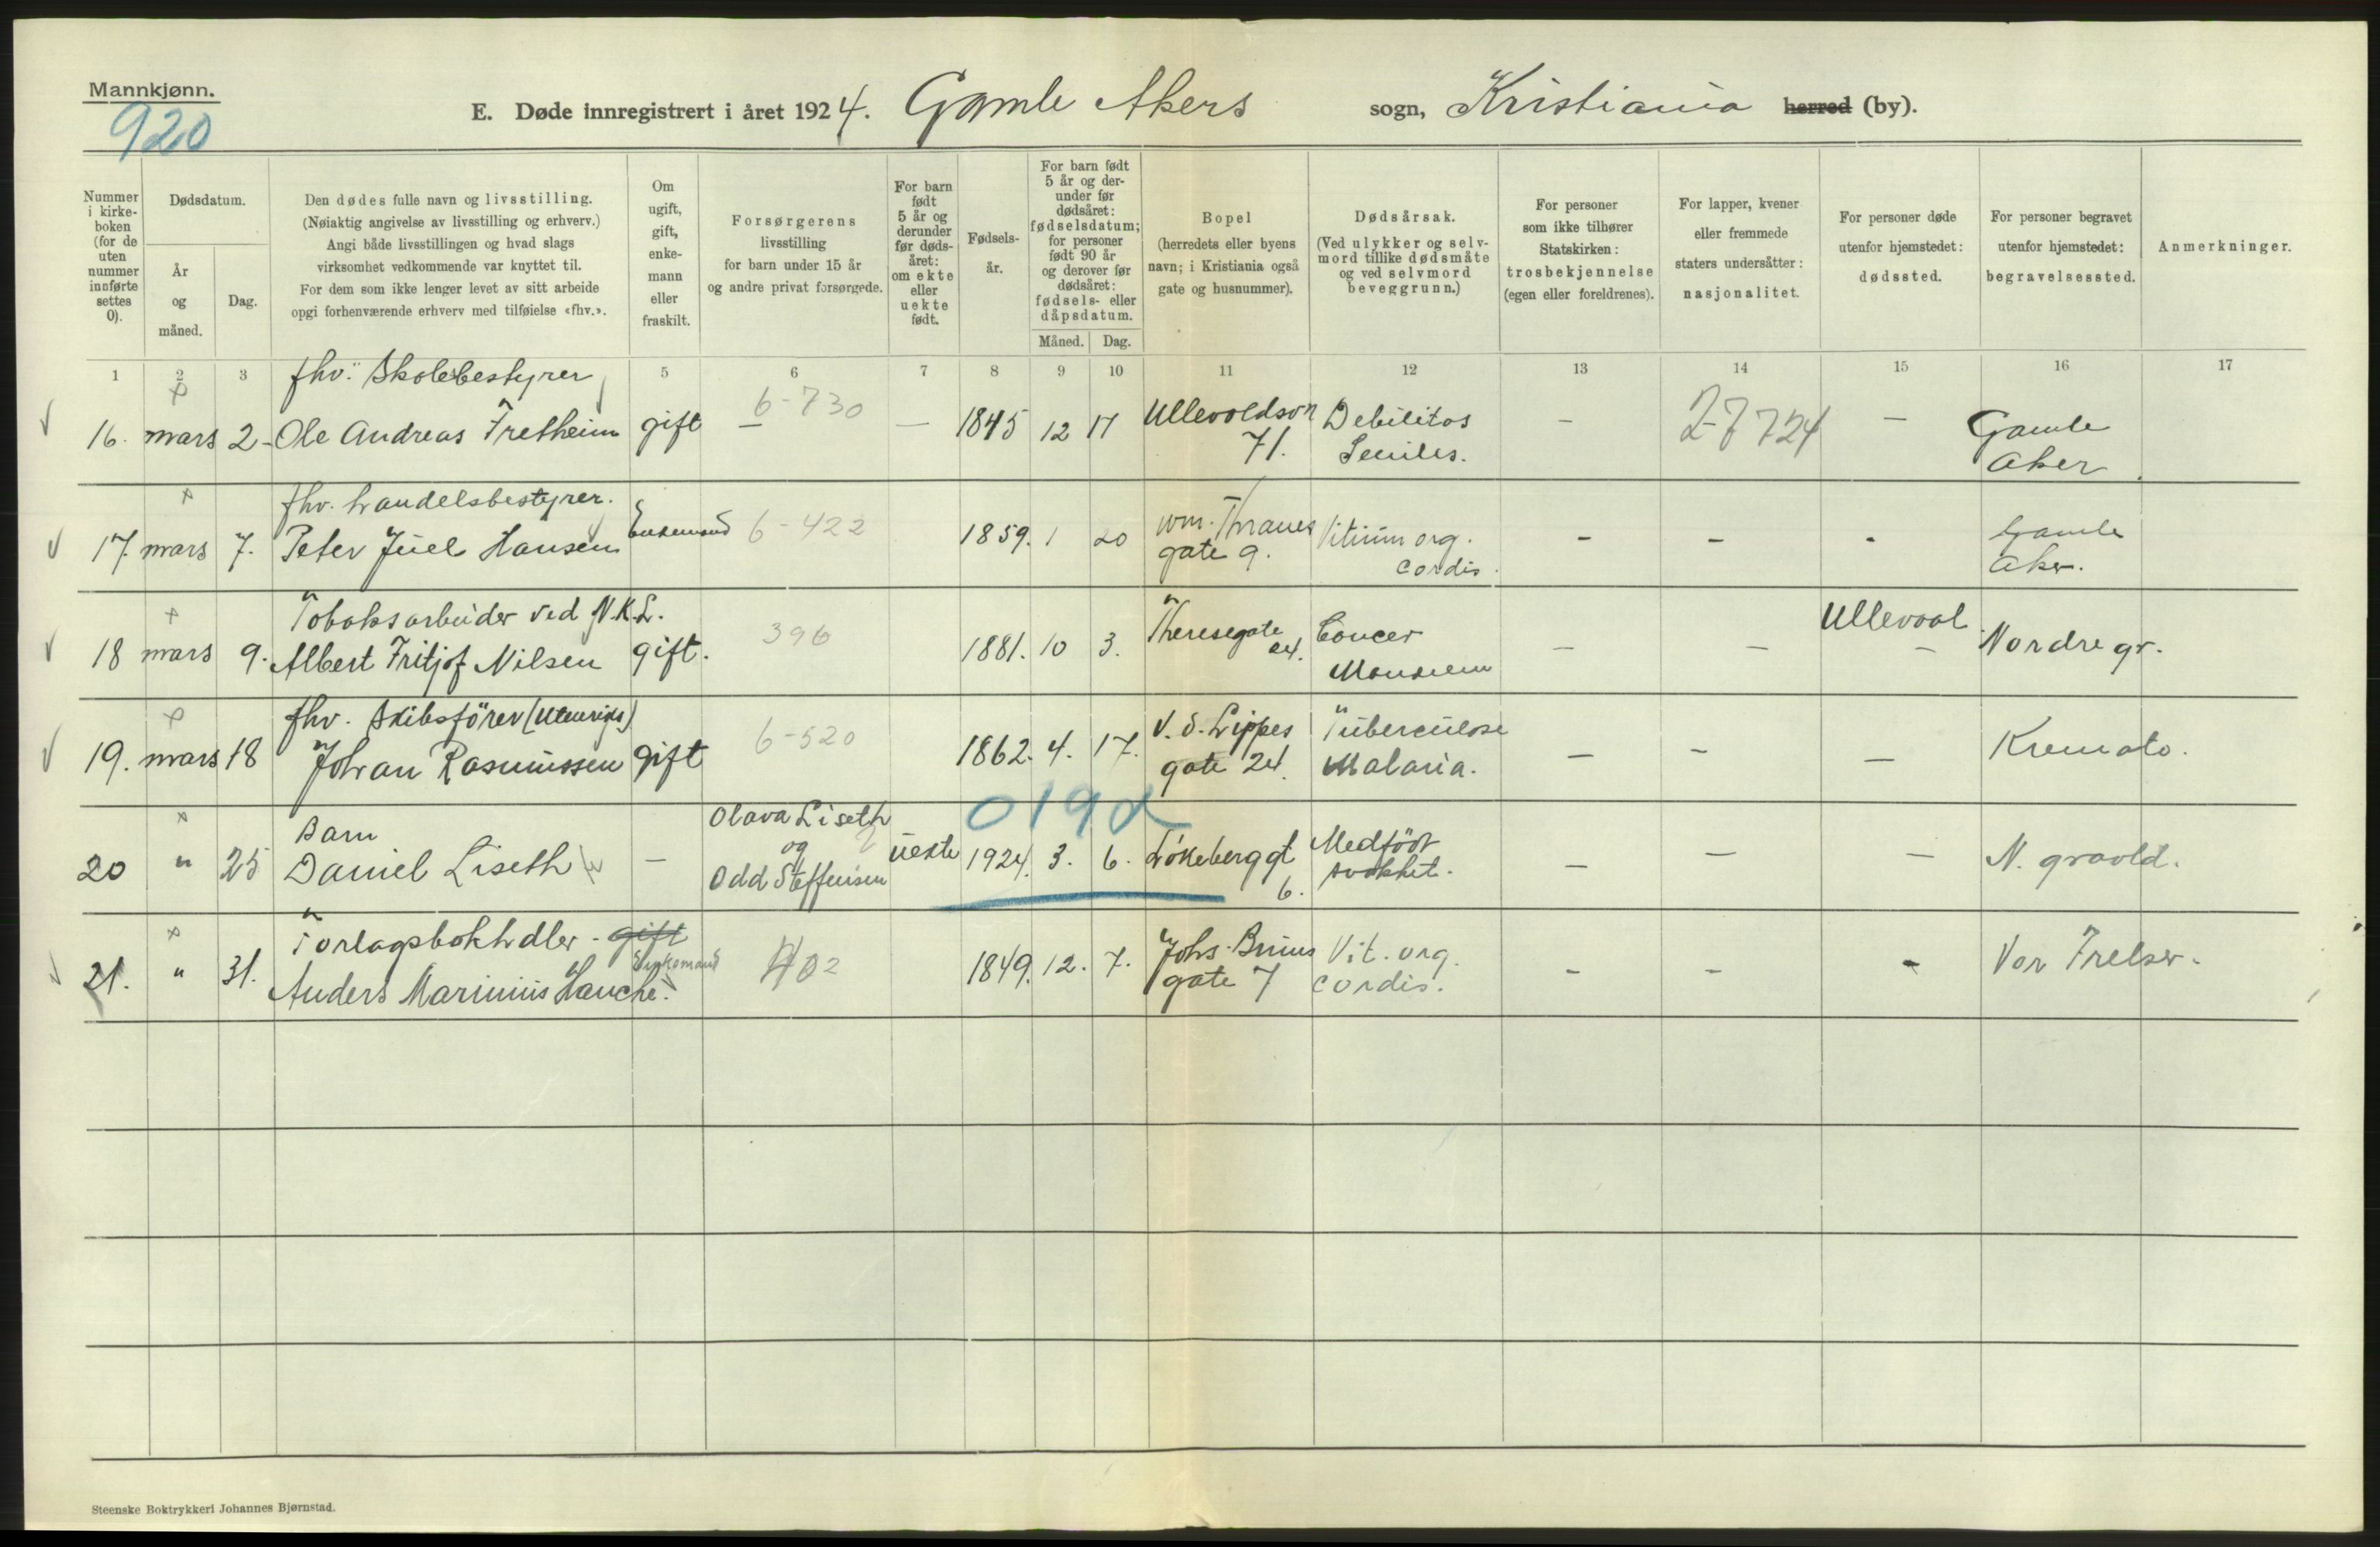 Mannkjønn.
920
E. Døde innregistrert i året 1924. Gamle Akers sogn, Kristiania herred (by).
Nummer i kirke-boken (for de uten nummer innførte settes 0).
Dødsdatum.
År og måned.
Dag.
Den dødes fulle navn og livsstilling.
(Nøiaktig angivelse av livsstilling og erhverv.)
Angi både livsstillingen og hvad slags
virksomhet vedkommende var knyttet til.
For dem som ikke lenger levet av sitt arbeide
opgi forhenværende erhverv med tilføielse «fhv.».
Om ugift, gift, enke-mann eller fraskilt.
Forsørgerens
livsstilling
for barn under 15 år
og andre privat forsørgede.
For barn født 5 år og derunder før døds-året: om ekte eller uekte født.
Fødsels-år.
For barn født 5 år og der-under før dødsåret: fødselsdatum; for personer født 90 år og derover før dødsåret: fødsels- eller dåpsdatum.
Måned. Dag.
Bopel
(herredets eller byens
navn; i Kristiania også
gate og husnummer).
Dødsårsak.
(Ved ulykker og selv-
mord tillike dødsmåte
og ved selvmord
beveggrunn.)
For personer
som ikke tilhører
Statskirken:
trosbekjennelse
(egen eller foreldrenes).
For lapper, kvener
eller fremmede
staters undersåtter:
nasjonalitet.
For personer døde
utenfor hjemstedet:
dødssted.
For personer begravet
utenfor hjemstedet:
begravelsessted.
Anmerkninger.
1 2 3 5 6 7 8 9 10 11 12 13 14 15 16 17
fhv. Skolebestyrer
16. mars 2 - Ole Andreas Fretheim gift 6-730 — — 1845 12 17 Ullevoldsvn 71. Debilitas Senilis. — 2-7724 — Gamle Aker
fhv. handelsbestyrer.
17 mars 7. Peter Juel Hansen Enkemand 6-422 1859. 1 20 Wm. Thranes gate 9. Vitium org. cordis. - - - Gamle Aker.
Tobaksarbeider ved N.K.L.
18 mars 9. Albert Fritjof Nilsen gift. 396 1881. 10 3. Theresegate 24. Cancer — — Ullevaal — Nordre gr.
fhv. Skibsförer (Utenriks)
19. mars 18 Johan Rasmussen gift 6-520 1862. 4. 17. V. d. Lippes gate 24. Tuberculose Malaria. — - — Kremato.
019
Barn
20 " 25 Daniel Liseth — Olava Liseth og Odd Steffensen uekte 1924. 3. 6. Lökeberggt 6. Medfödt svakhet. — — — N. gravld.
Forlagsbokhdler - gift
21. " 31. Anders Marinius Hauche. Enkemand 402 1849. 12. 7. Johs. Bruns gate 7 Vit. org. cordis. - - - Vor Frelser.
Steenske Boktrykkeri Johannes Bjørnstad.